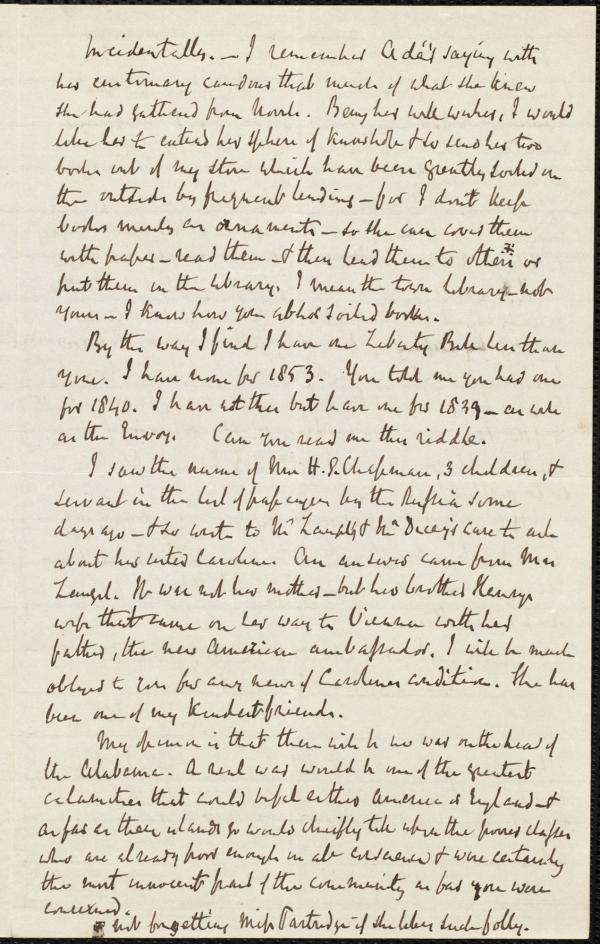 Incidentally. — I remember Ada's saying with
her customary candour that much of what she knew
she had gathered from Novels. Being her well wisher, I would
like her to extend her sphere of knowledge & so send her two
books out of my store which have been greatly soiled on
the outside by frequent lending — for I don't keep
books merely as ornaments — so she can cover them
with paper — read them — & then lend them to others or
put them in the library. I mean the town library — not
yours — I know how you abhor soiled books.
By the way I find I have one Liberty Bell less than
you. I have none for 1853. You told me you had one
for 1840. I have not this but have one for 1839 — as well
as the Envoy. Can you read me this riddle.
I saw the name of Mrs H. G. Chapman, 3 children, &
servant in the list of passengers by the Russia some
days ago — & so wrote to Mrs Laugel & Mr Dicey's care to ask
about her sister Caroline. An answer came from Mrs
Laugel. It was not her mother — but her brother Henrys
wife that came on her way to Vienna with her
father, the new American ambassador. I will be much
obliged to you for any news of Carolines condition. She has
been one of my kindest friends.
My opinion is that there will be no war on the head of
the Alabama. A real war would be one of the greatest
calamities that could befal either America or England — &
as far as these islands go would chiefly tell upon the poorer classes
who are already poor enough in all conscience & were certainly
the most innocent part of the community as far as you were
concerned.
not forgetting Miss Partridge if she likes such folly.